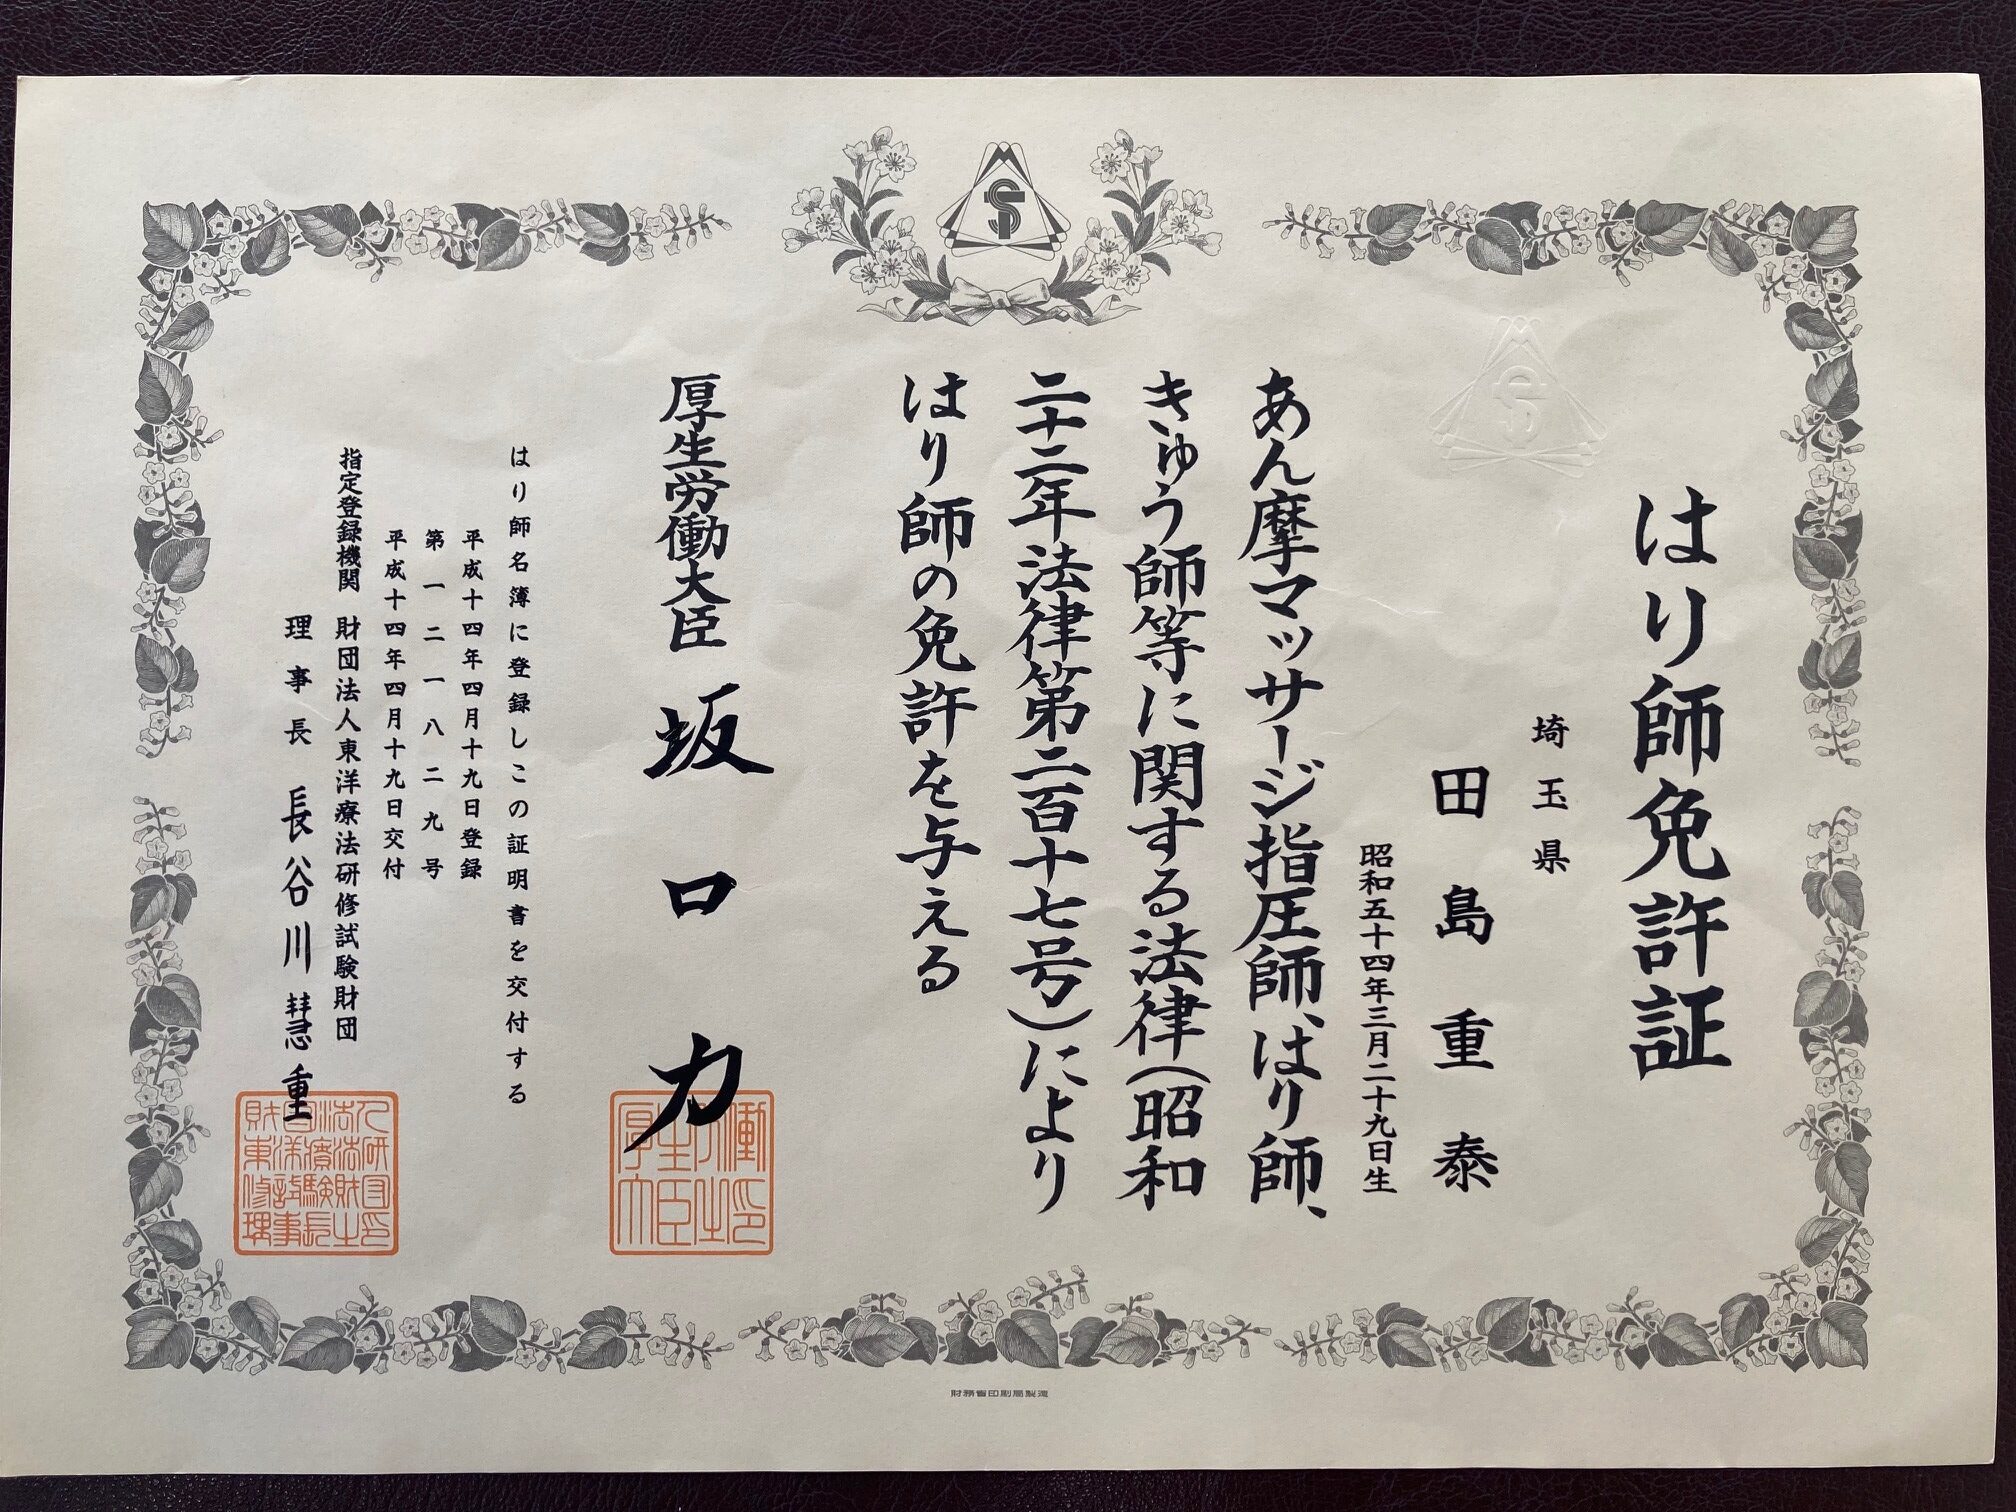 はり師免許証
埼玉県
田島重泰
昭和五十四年三月二十九日生
あん摩マッサージ指圧師、はり師、
きゅう師等に関する法律(昭和
二十二年法律第二百十七号)により
はり師の免許を与える
厚生労働大臣 坂口力
はり師名簿に登録しこの証明書を交付する
平成十四年四月十九日登録
第一二一八二九号
平成十四年四月十九日交付
指定登録機関 財団法人東洋療法研修試験財団
理事長 長谷川慧重
財務省印刷局製造